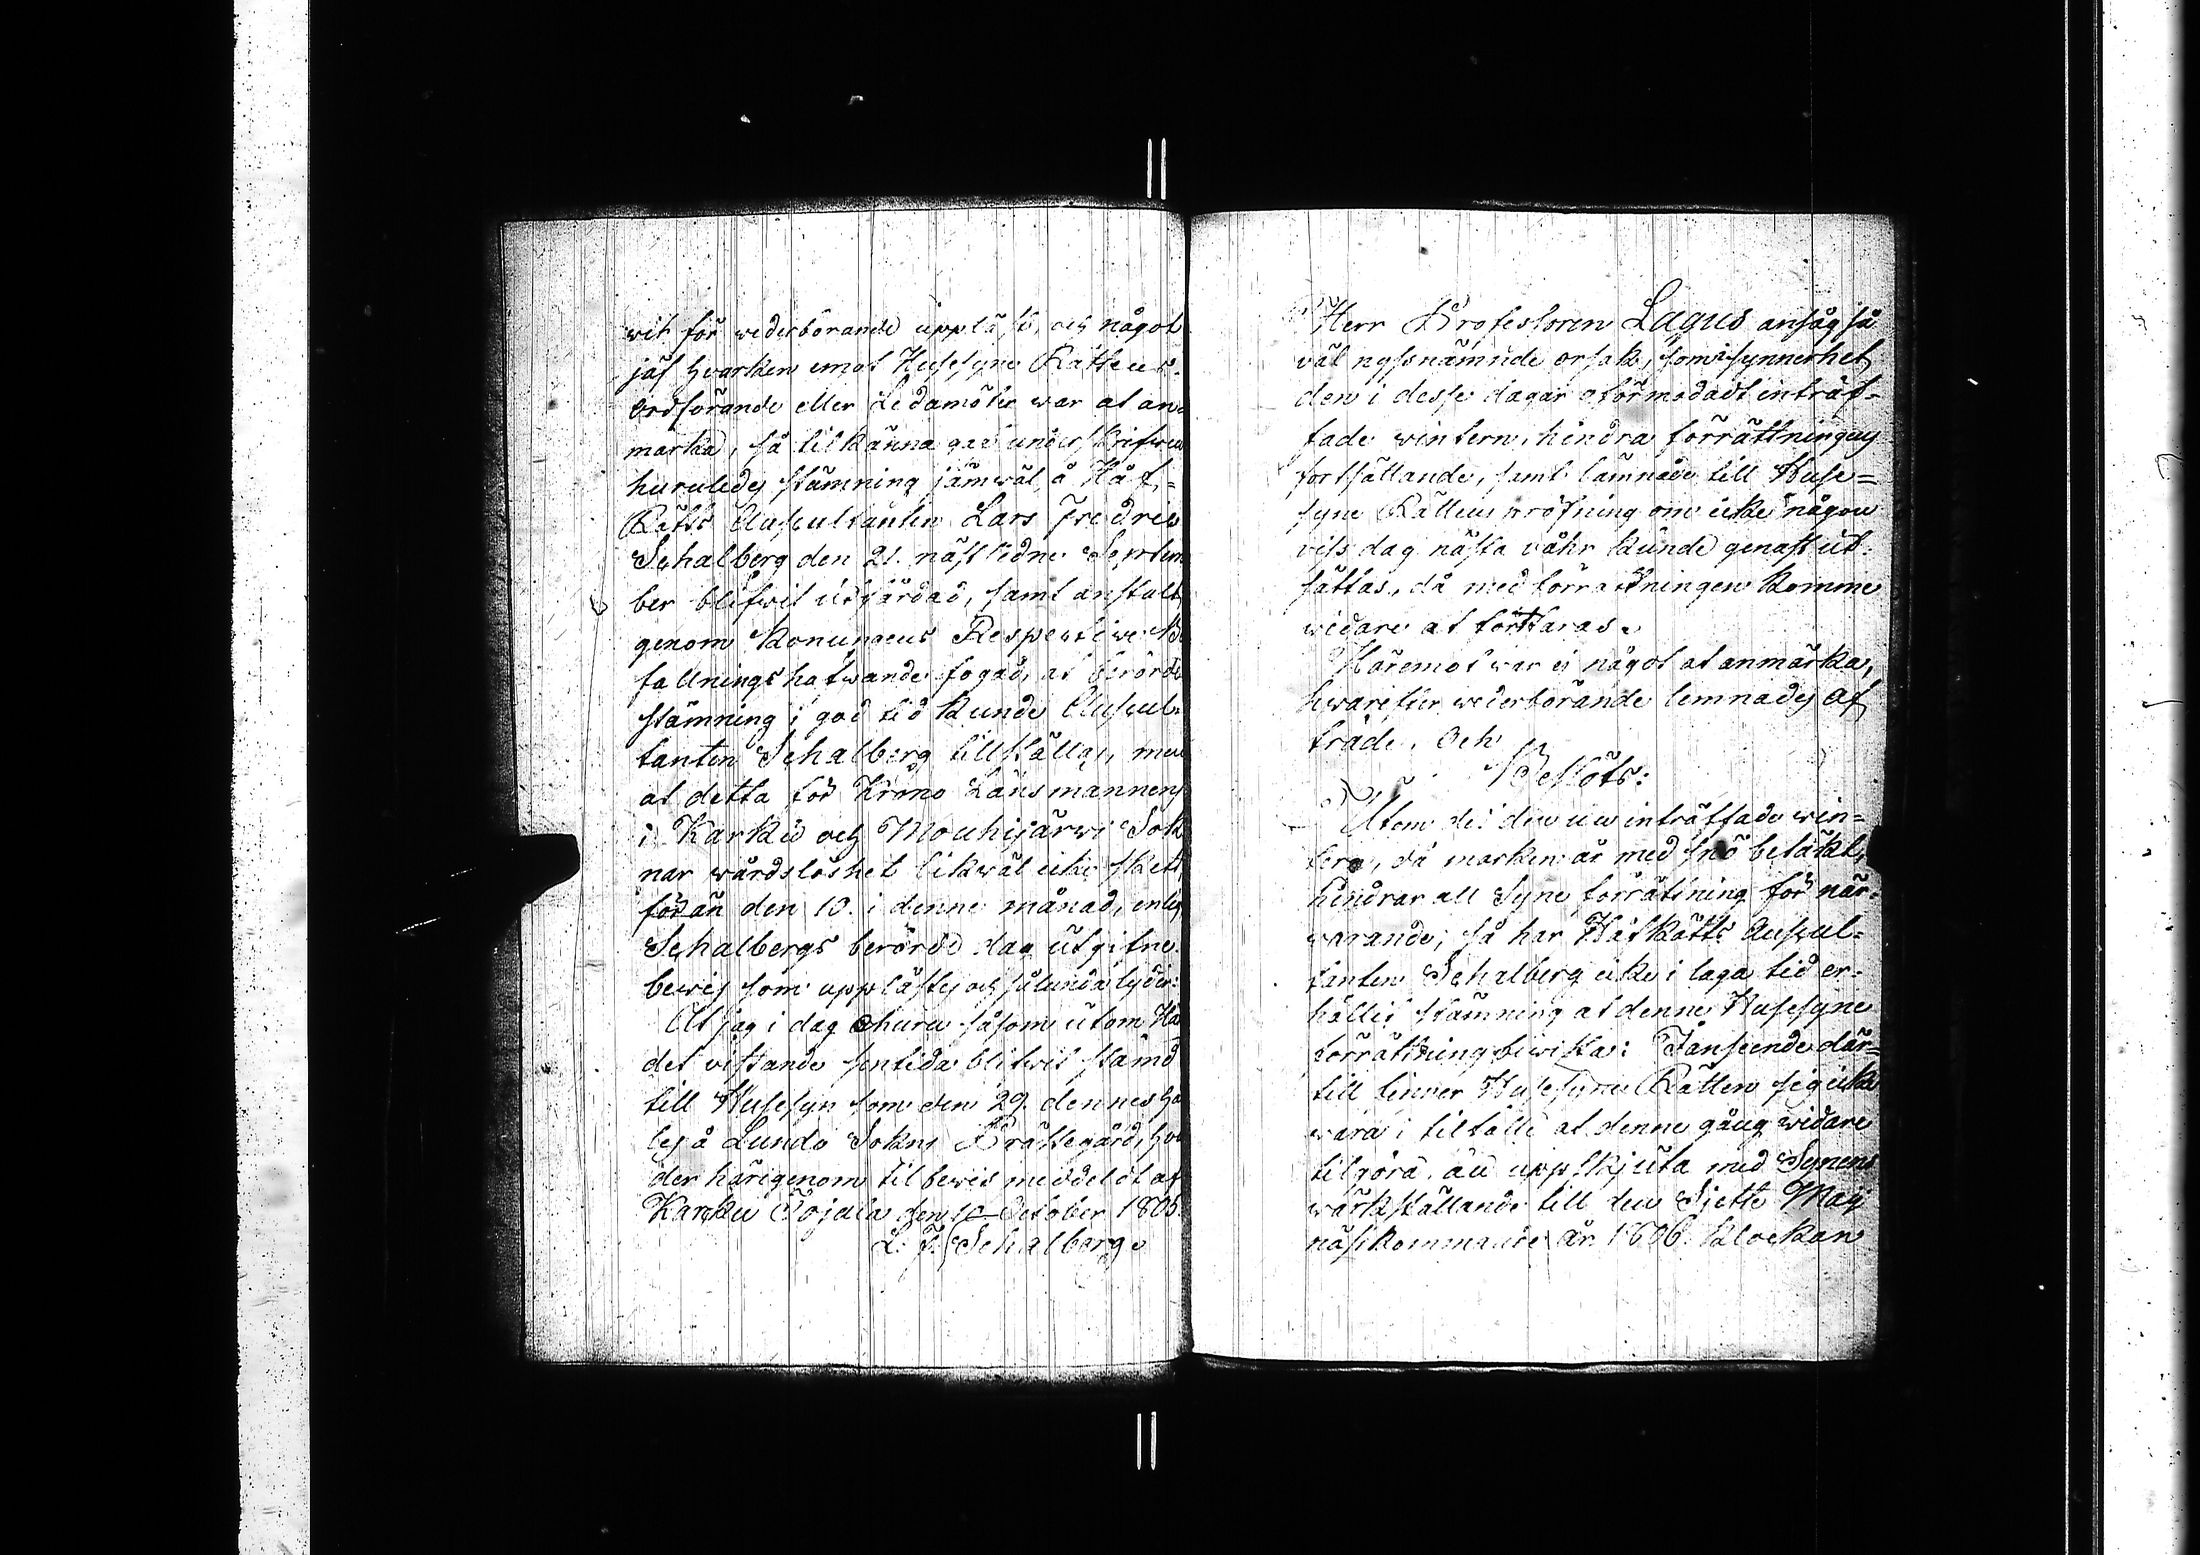 wit för wederbörande uppläst, och något
jäf hvarken emot Husesyne Rättens
ordförande eller Ledamöter war at an
märka, så tilkänna gaf underskrifwen
huruledes stämning jämwäl å Håf-
Rätts Auscultanten Lars Fredric
Schalberg den 21. nästledne Septem
ber blifwit utfärdad, samt anstalt
genom Konungens Respective Be
fallningshafwande fogad, at berörde
stämning i god tid kunde Auscul-
tanten Schalberg tillställas, men
at detta för Krono Länsmannens
i Karku och Mouhijärwi Sok
nar wårdslöshet likwäl icke skett
förän den 10. i denne månad, enligt
Schalbergs berörde dag utgifne
bewis som upplästes och sålunda lyder:
At jag i dag ehuru såsom utom Hä
det vistande sentida blifwit stämd
till Husesyn som den 29. dennes hå
les å Lundo Sokns Prästegård, hwi
der härigenom til bewis meddelat af
Karku Tojala den 10 October 1805.
L. F. Schalberg.
Herr Professoren Lagus ansåg så
väl nyssnämnde orsak, som i synnerhet
den i desse dagar oförmodadt inträf-
fade wintern, hindra förrättningens
fortsättande, samt lämnade till Huse=
syne Rättens pröfning om icke någon
viss dag nästa våhr kunde genast ut-
sättas, då med förrättningen komme
widare at fortfaras.
Häremot war ej något at anmärka,
hwarefter wederbörande lemnades af
träde, och
Beslöts:
Utom det den nu inträffade win=
tern, då marken är med snö betäkt,
hindrar all Syne förrättning för när-
warande; så har Håfrätts Auscul=
tanten Schalberg icke i laga tid er-
hållit stämning at denne Husesyne
förrättning bewista: I anseende där=
till finner Husesyne Rätten sig icke
wara i tilfälle at denne gång widare
tilgöra, än uppskjuta med Synens
wärkställande till den Sjette Maij
nästkommande år 1806. klockan